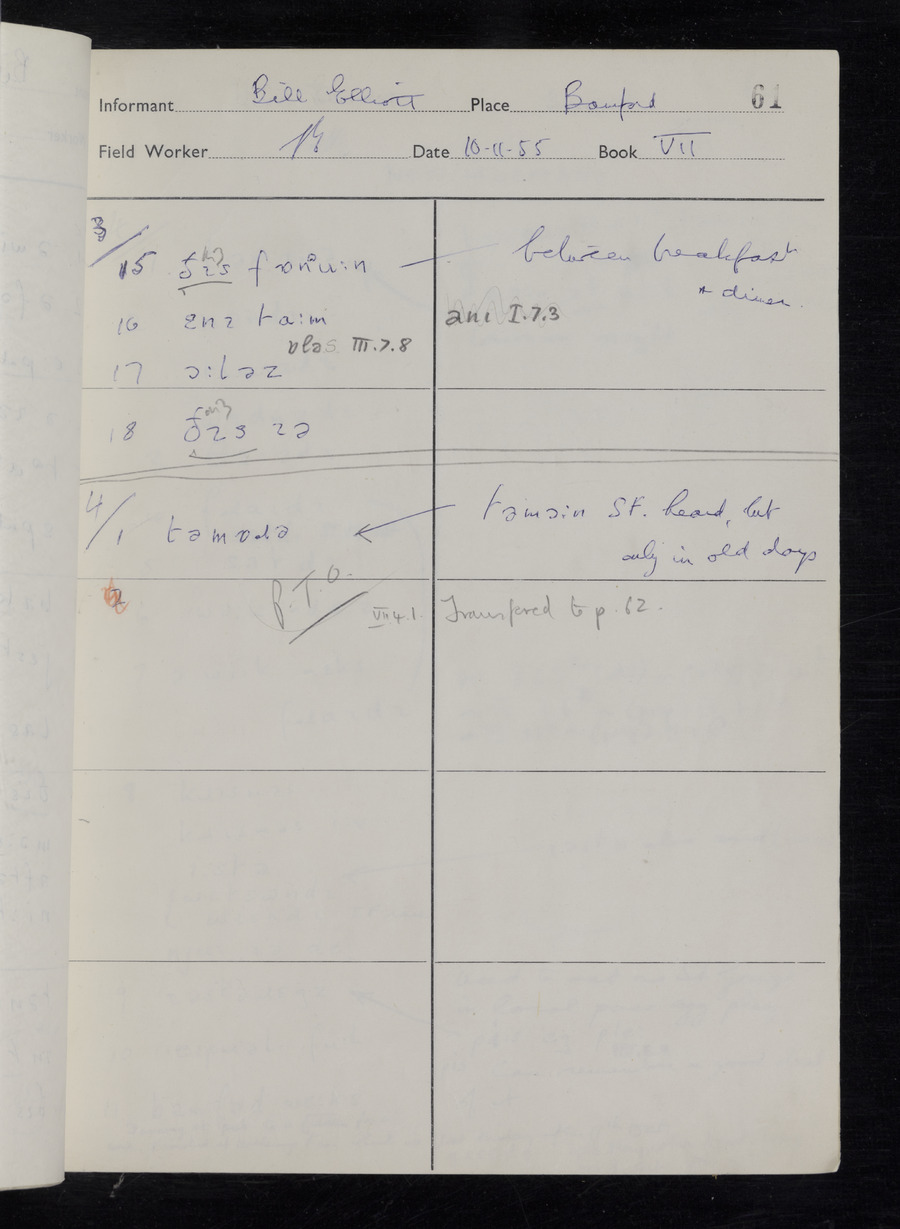 Informant Bill Elliott Place Bamford 61
Field Worker Date 10-11-55 Book VII
3/
15 between breakfast
+ dinner.
16 ɛnɪ taːɪm ani I.7.3
III.7.8
17
18
4/1 təmɒɹə ← təmɔɪn St. heard, but
only in old days
2 P.T.O. VII.4.1. Transferred to p. 62.